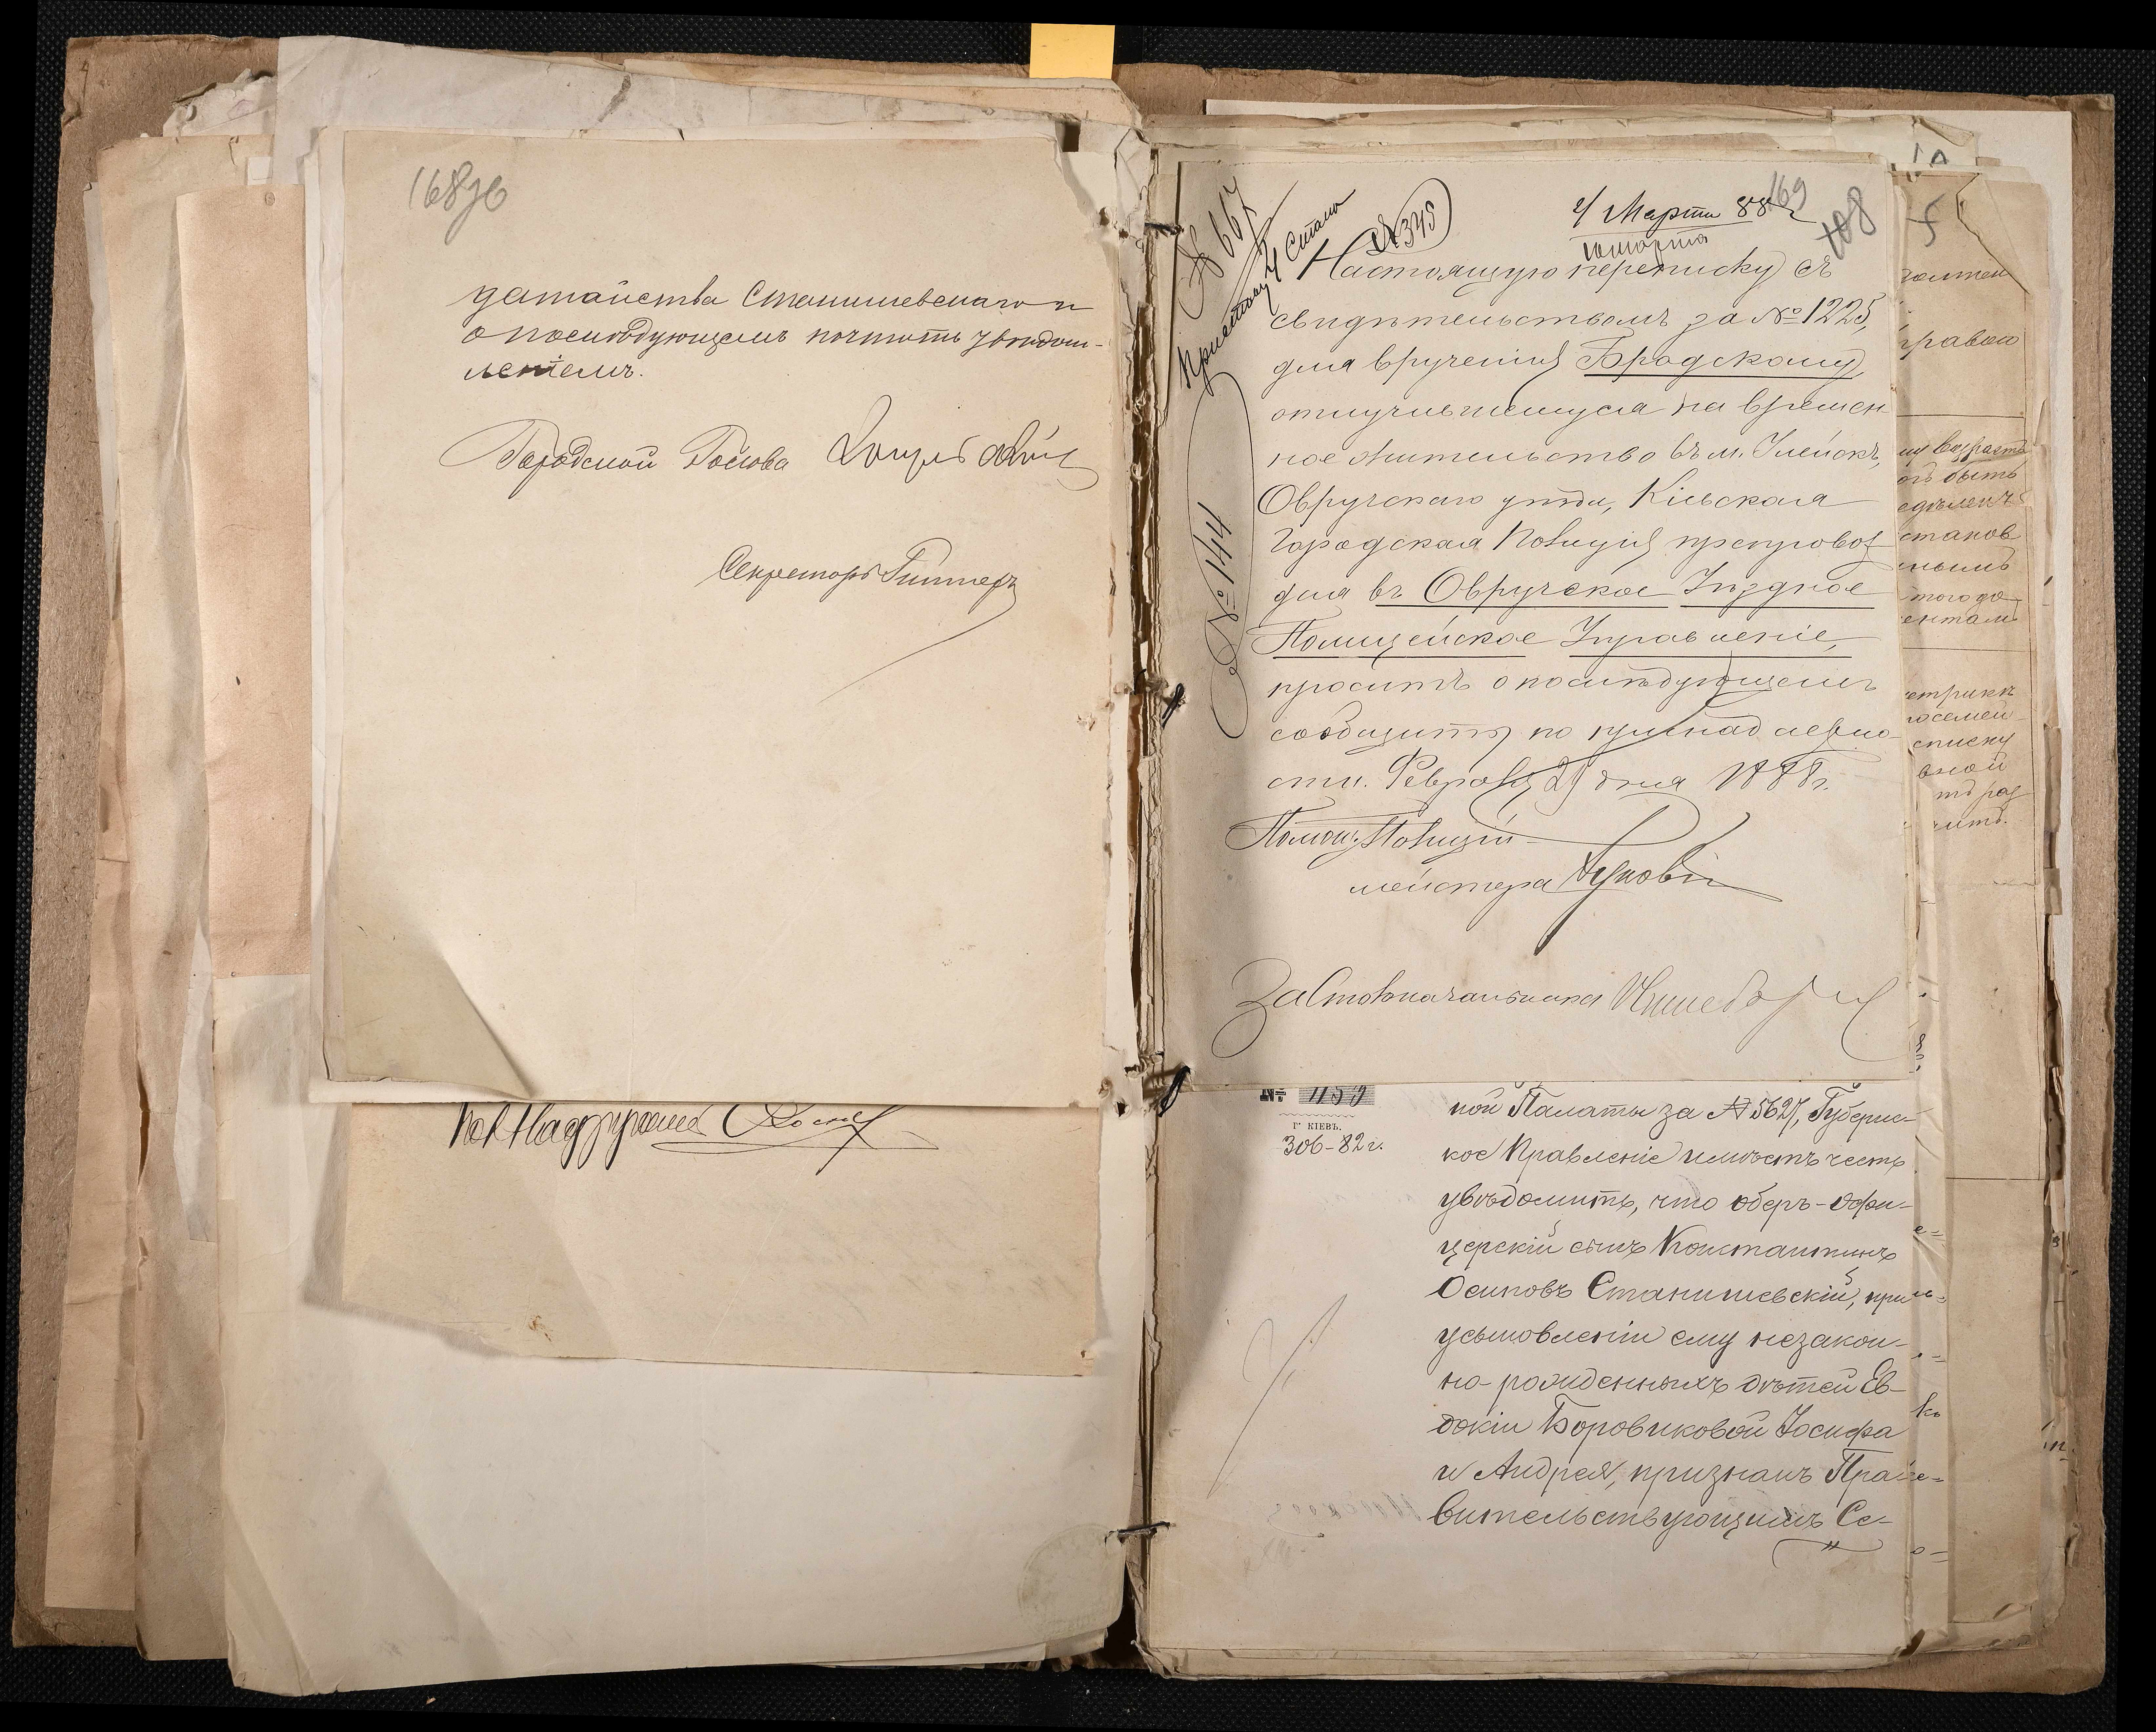 168 об
датайства Станишевскаго и
о послѣдующемъ почтить увѣдом-
леніемъ.
Городской Голова
Секретарь
№ 667
Приставу 4 Стана
№ 345
4 Марта 88
169
108
Настоящую переписку съ
свидѣтельствомъ за № 1225,
для врученія Брадскому,
отлучившемуся на времен
ное жительство въ м.
Овручскаго уѣзда, Кіевская
Городская Полиція препровож
дая въ Овручское Уѣздное
Полицейское Управленіе,
проситъ о послѣдующемъ
сообщить по принадлежно
сти. Февраля 29 дня 1888 г.
Помощ. Полицій
мейстера
За Столоначальника
№ 144
№ 1159
Г. КІЕВЪ.
306-82 г.
ной Палаты за № 5627, Губернс-
кое Правленіе имѣетъ честь
увѣдомить, что оберъ-офи-
церскій сынъ Константинъ
Осиповъ Станишевскій, при
усыновленіи ему незакон-
но-рожденныхъ дѣтей Ев-
докіи Боровиковой Іосифа
и Андрея, признанъ Пра-
вительствующимъ Се-
правою
му возраста
быть
станов
того до
ентам
етрикѣ
осемей-
списку
вной